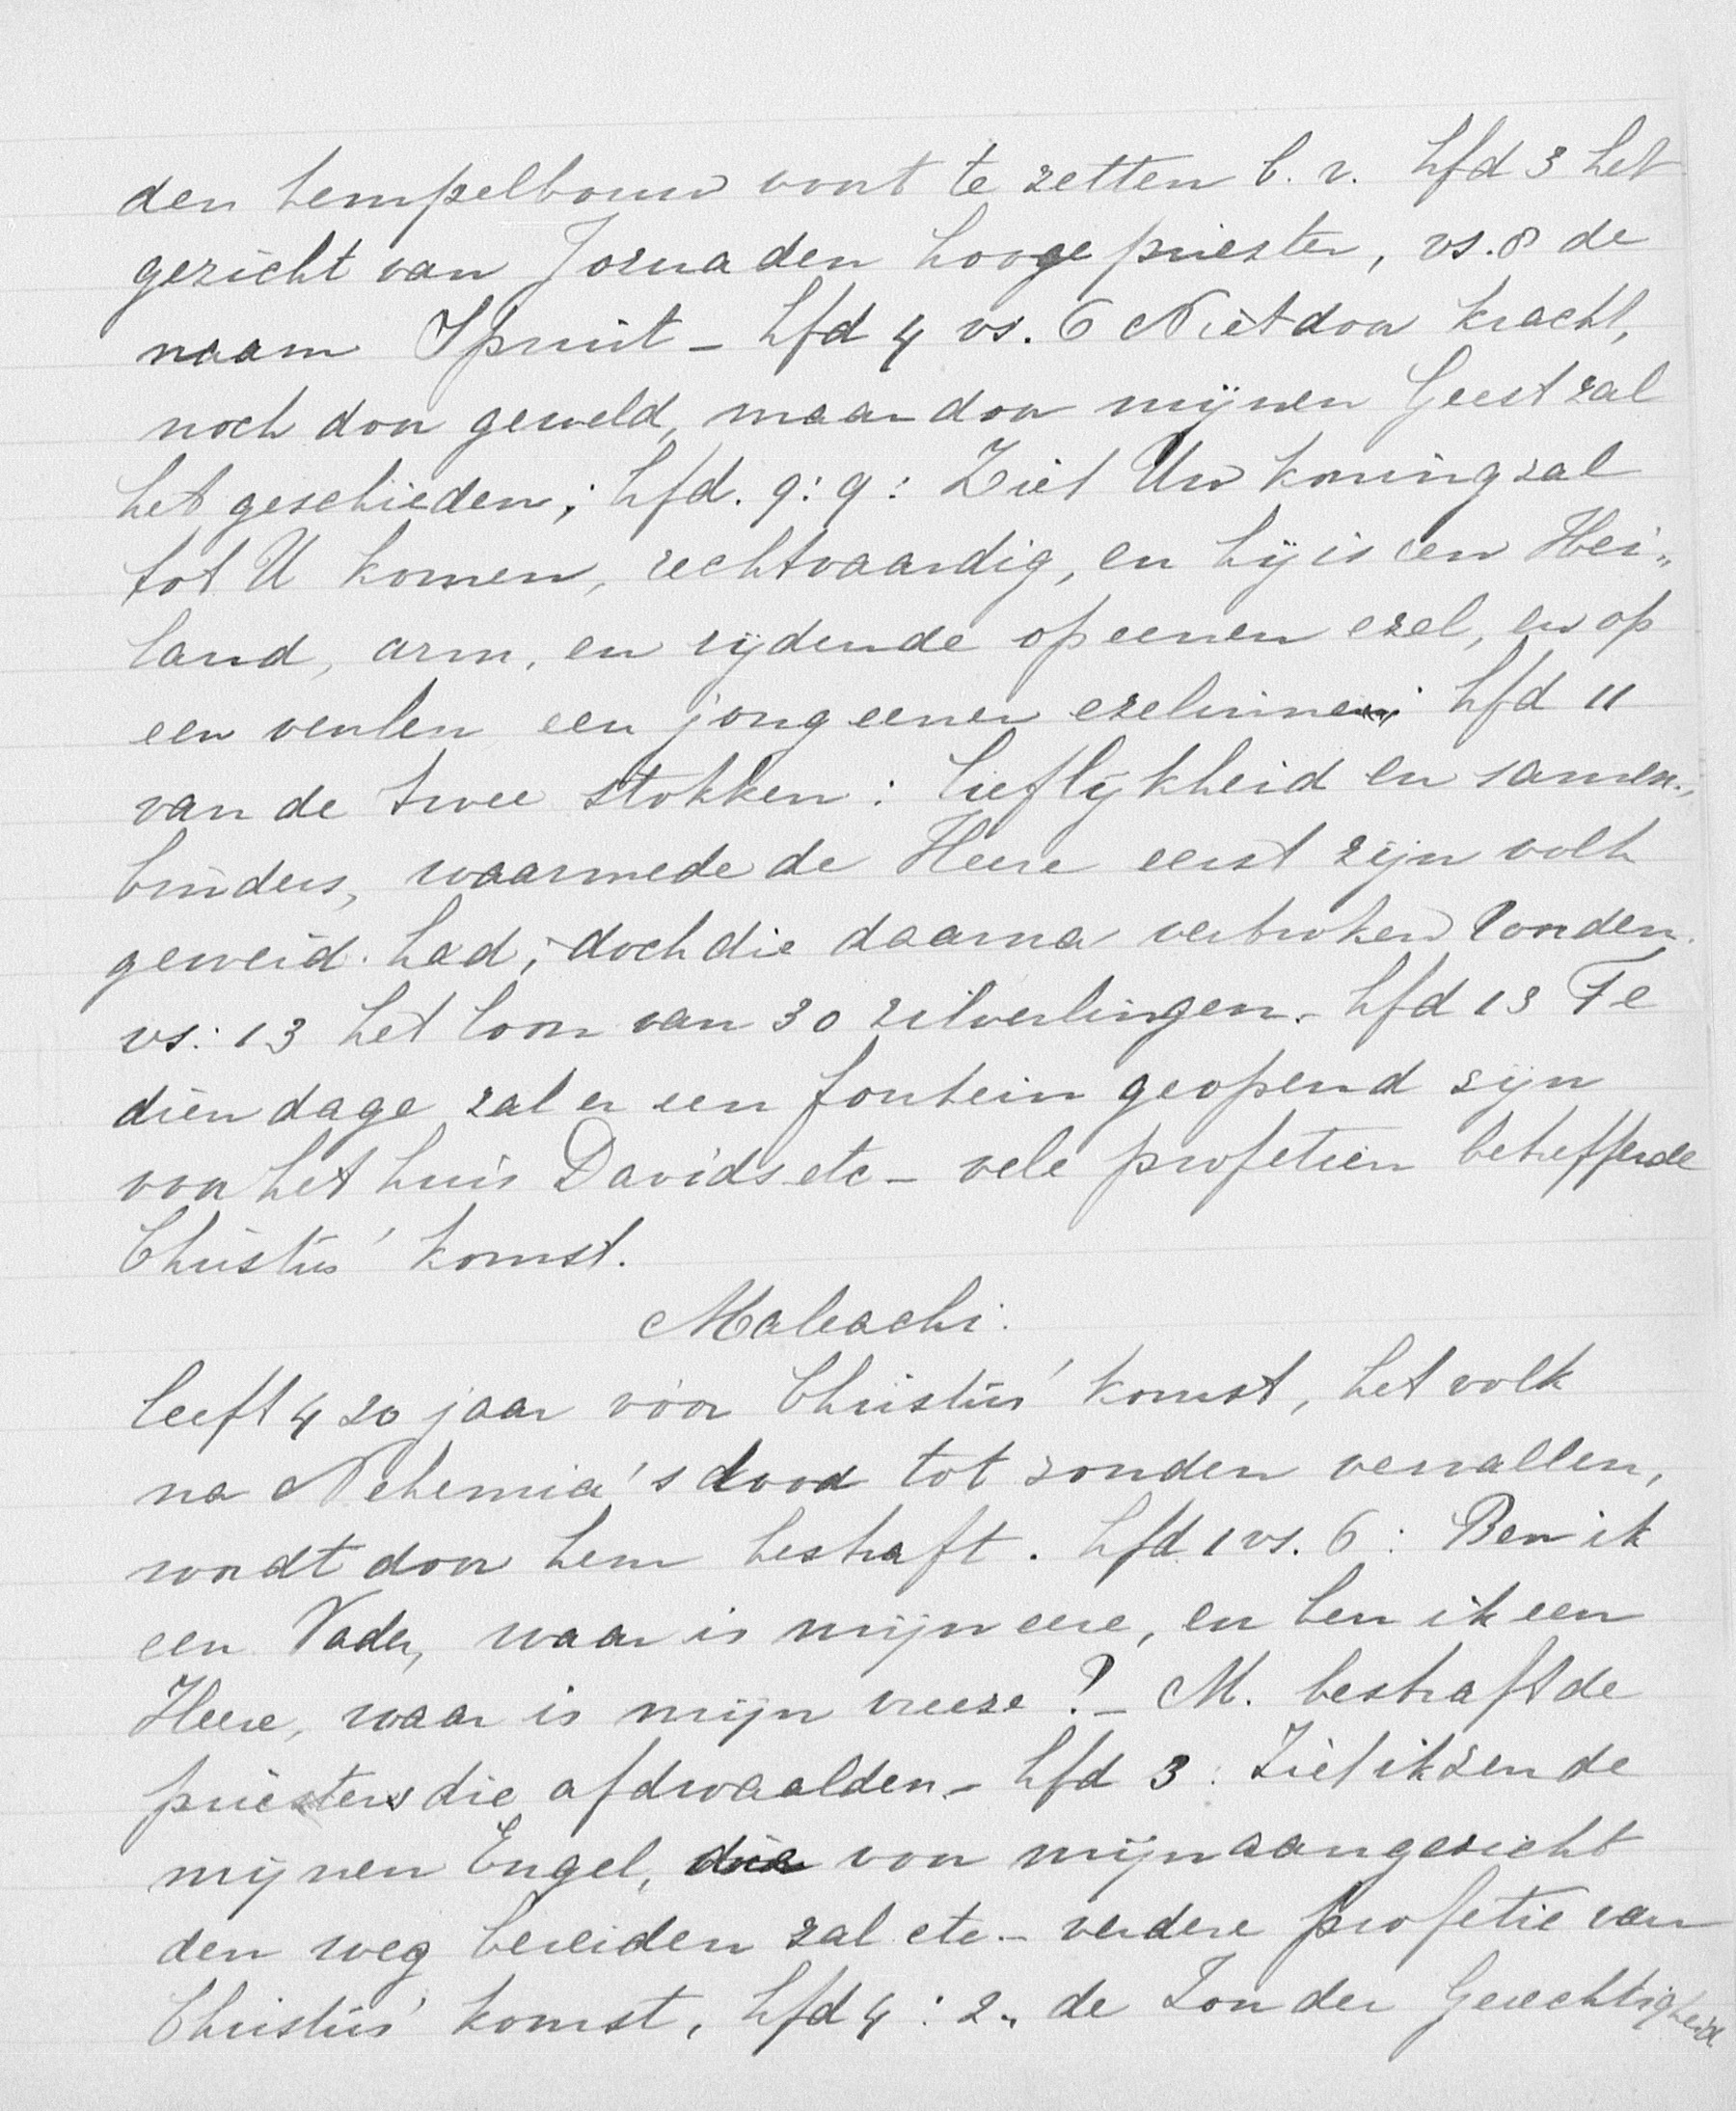 den tempelbouw voort te zetten b.v. hfd 3 het
gezicht van Jozua den hoogepriester, vs. 8 de
naam Spruit - hfd 4 vs. 6 Niet door kracht,
noch door geweld, maar door mijnen Geest zal
het geschieden; hfd. 9:9: Ziet Uw koning zal
tot U komen, rechtvaardig, en hij is een Hei„
land, arm, en rijdende op eenen ezel, en op
een veulen een jong eener ezelinne; hfd 11
van de twee stokken: lieflijkheid en samen„
binders, waarmede de Heere eerst zijn volk
geweid had; doch die daarna verbroken worden.
vs: 13 het loon van 30 zilverlingen. - hfd 13 Te
dien dage zal er een fontein geopend zijn
voor het huis Davids etc - vele profetieën betreffende
Christus' komst.
Maleachi.
leeft 420 jaar vóór Christus' komst, het volk
na Nehemia's dood tot zonden vervallen,
wordt door hem bestraft. hfd 1 vs. 6: Ben ik
een Vader, waar is mijn eere, en ben ik een
Heere, waar is mijn vreeze? - M. bestraft de
priesters die afdwaalden. - hfd 3: Ziet ik zende
mijnen Engel, die voor mijn aangezicht
den weg bereiden zal etc. - verdere profetie van
Christus' komst, hfd 4:2„ de Zon der Gerechtigheid